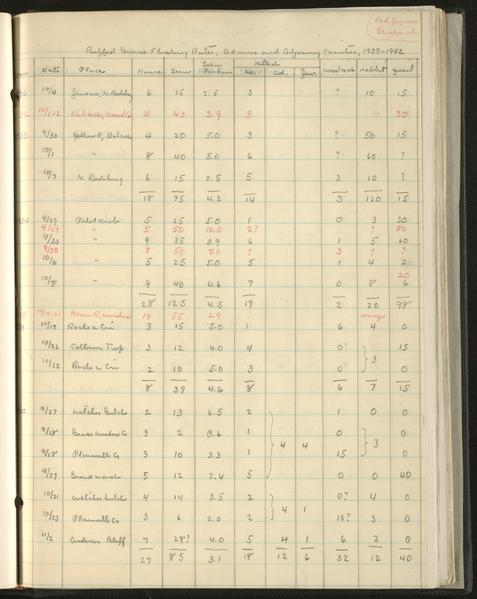 Red figures
Ruffed Grouse Flushing Rates, Adams and Adjoining Counties, 1929-1942
Date Place Hours Seen Seen Per Hour Killed No. ad. Juv. woodcock rabbit quail
10/4 6 15 2.5 3 ? 10 15
10/1-2 11 43 3.9 3 30
9/30 Yellow R, 4 20 5.0 3 ? 50 15
10/1 " 8 40 5.0 6 ? 60 ?
10/7 N. Reedsburg 6 15 2.5 5 3 10 ?
18 75 4.2 14 3 120 15
9/29 5 25 5.0 1 0 3 30
9/29 " 5 50 10.0 2? ? 80
9/30 " 9 35 3.9 6 1 5 60
9/30 " 7 50 7.0 ? 3 ? ?
10/6 " 5 25 5.0 5 1 4 2
20
10/7 " 9 40 4.6 7 0 8 6
28 125 4.5 19 2 20 98
19 55 2.9 many
10/19 Roche a Cri 3 15 5.0 1 6 4 0
10/22 Colburn Twp 3 12 4.0 4 0 15
3
10/22 Roche a Cri 2 10 5.0 3 0 0
8 37 4.6 8 6 7 15
9/27 Witches Gulch 2 13 6.5 2 1 0 0
9/28 3 2 0.6 1 0 0
4 4 3
9/28 Plainville Co 3 10 3.3 1 15 0
9/29 Grand Marsh 5 12 2.4 5 0 0 40
10/21 Witches Gulch 4 14 3.5 2 0? 4 0
4 1
10/23 Plainville Co 3 6 2.0 2 10? 3 0
11/2 Anderson Bluff 7 28? 4.0 5 4 1 6 2 0
27 85 3.1 18 12 6 32 12 40